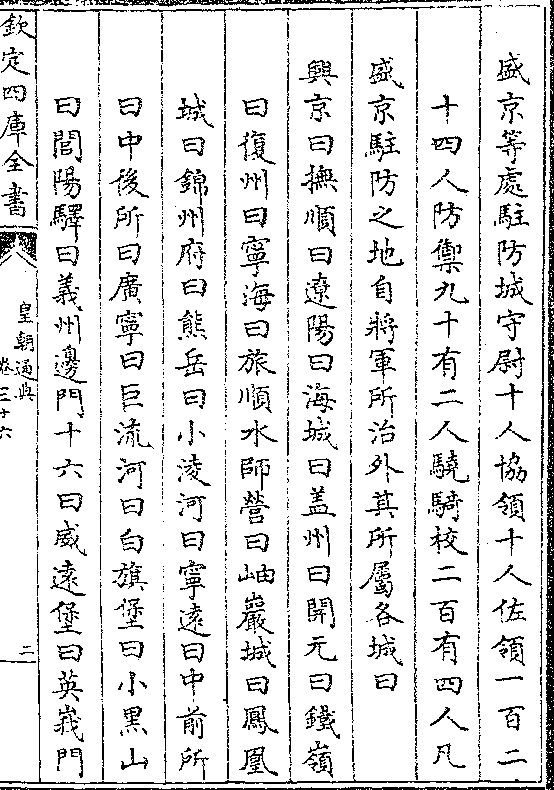 盛京等處駐防城守尉十人協領十人佐領一百二
十四人防禦九十有二人驍騎校二百有四人凡
盛京駐防之地自將軍所治外其所屬各城曰
興京曰撫順曰遼陽曰海城曰盖州曰開元曰鐵嶺
曰復州曰寧海曰旅順水師營曰岫巖城曰鳳凰
城曰錦州府曰熊岳曰小淩河曰寧遠曰中前所
曰中後所曰廣寧曰巨流河曰白旗堡曰小黑山
曰閭陽驛曰義州邊門十六曰威遠堡曰英峩門
欽定四庫全書
皇朝通典
卷三十六
二